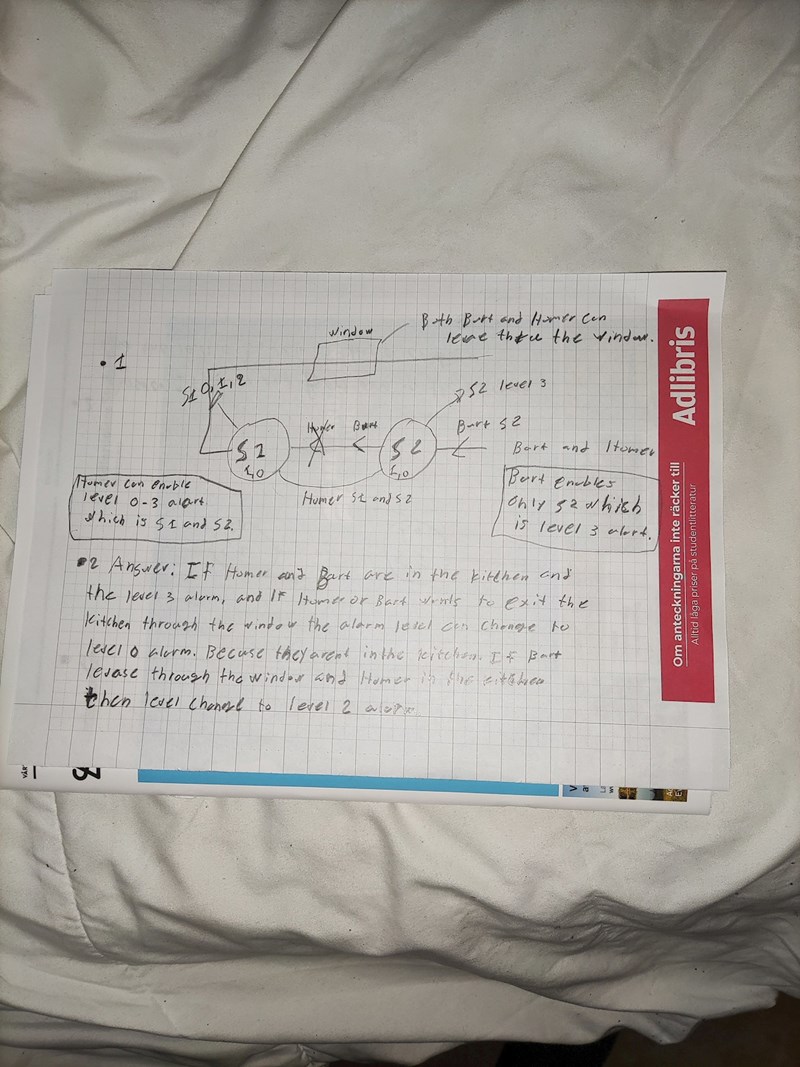 • 1
window
Both Bart and Homer can
leave thru the window.
S1 0,1,2
S2 level 3
S1
1,0
Homer
Bart
S2
1,0
Bart S2
Bart and Homer
Homer S1 and S2
Homer can enable
level 0-3 alart
which is S1 and S2.
Bart enables
only S2 which
is level 3 alart.
•2 Answer: IF Homer and Bart are in the kitchen and
the level 3 alarm, and IF Homer or Bart wants to exit the
kitchen through the window the alarm level can change to
level 0 alarm. Becuse they arent in the kitchen. IF Bart
levase through the window and Homer in the kitchen
then level change to level 2 alarm
Adlibris
Om anteckningarna inte räcker till
Alltid låga priser på studentlitteratur
VÄR